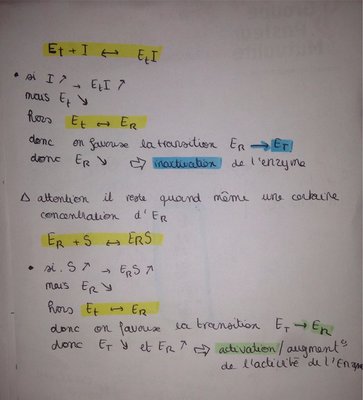 Et + I ↔ EtI
• si I ↗ → EtI ↗
mais Et ↘
hors Et ↔ ER
donc on favorise la transition ER → ET
donc ER ↘ ⇨ inactivation de l'enzyme
△ attention il reste quand même une certaine
concentration d'ER
ER + S ↔ ERS
• si S ↗ → ERS ↗
mais ER ↘
hors Et ↔ ER
donc on favorise la transition ET → ER
donc ET ↘ et ER ↗ ⇨ activation/augment°
de l'activité de l'Enzyme